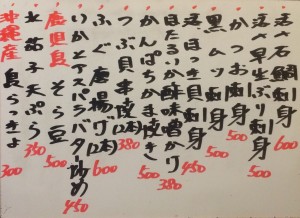 活〆石鯛刺身 600
活〆早生ぶり刺身 500
かつお刺身 500
黒ムツ刺身 500
ほっき貝刺身 450
ほたるいか酢味噌がけ 380
かんぱちかま焼き 500
つぶ貝串焼(2本) 380
ふぐ唐揚げ(2本) 600
いかとアスパラバター炒め 450
鹿児島産 そら豆 500
上茄子天ぷら 350
沖縄産 島らっきょ 300